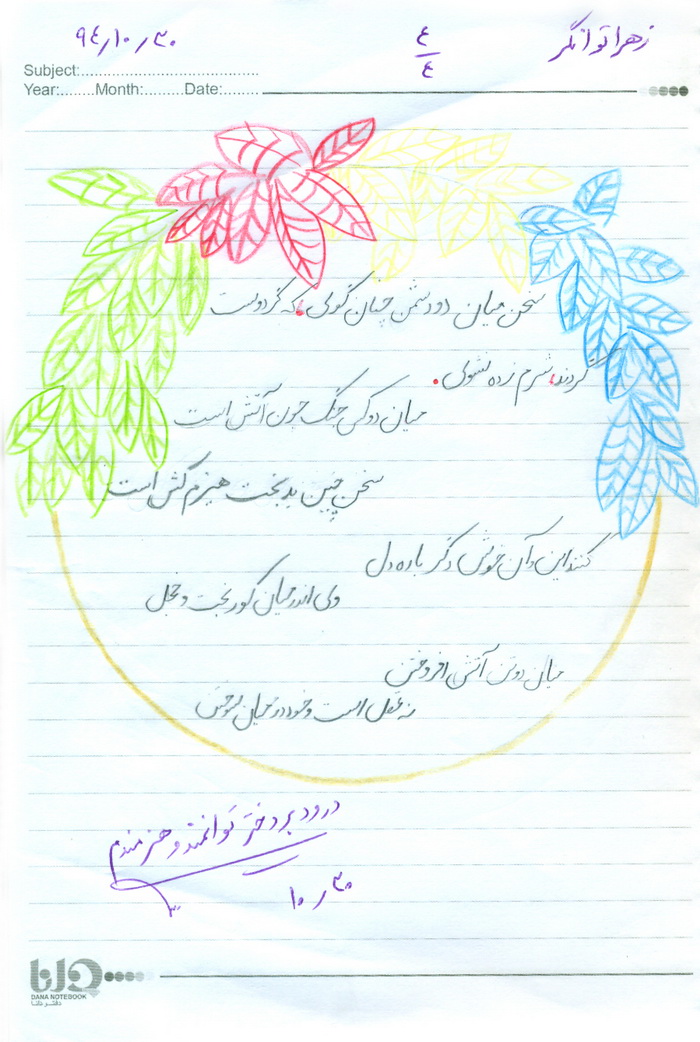 زهرا توانگر
٤/٤
٩٤٫١٠٫٣٠
Subject:
Year: Month: Date:
سخن میان دو دشمن چنان گوی، که گر دوست
گردند، شرم زده نشوی.
میان دو کس جنگ چون آتش است
سخن چین بدبخت هیزم کش است
کنند این و آن خوش دگر باره دل
وی اندر میان کور بخت و خجل
میان دو تن آتش افروختن
نه عقل است و خود در میان سوختن
درود بر دختر توانمند و هنرمندم
٣٠٫١٠
دانا
DANA NOTEBOOK
دفتر دانا